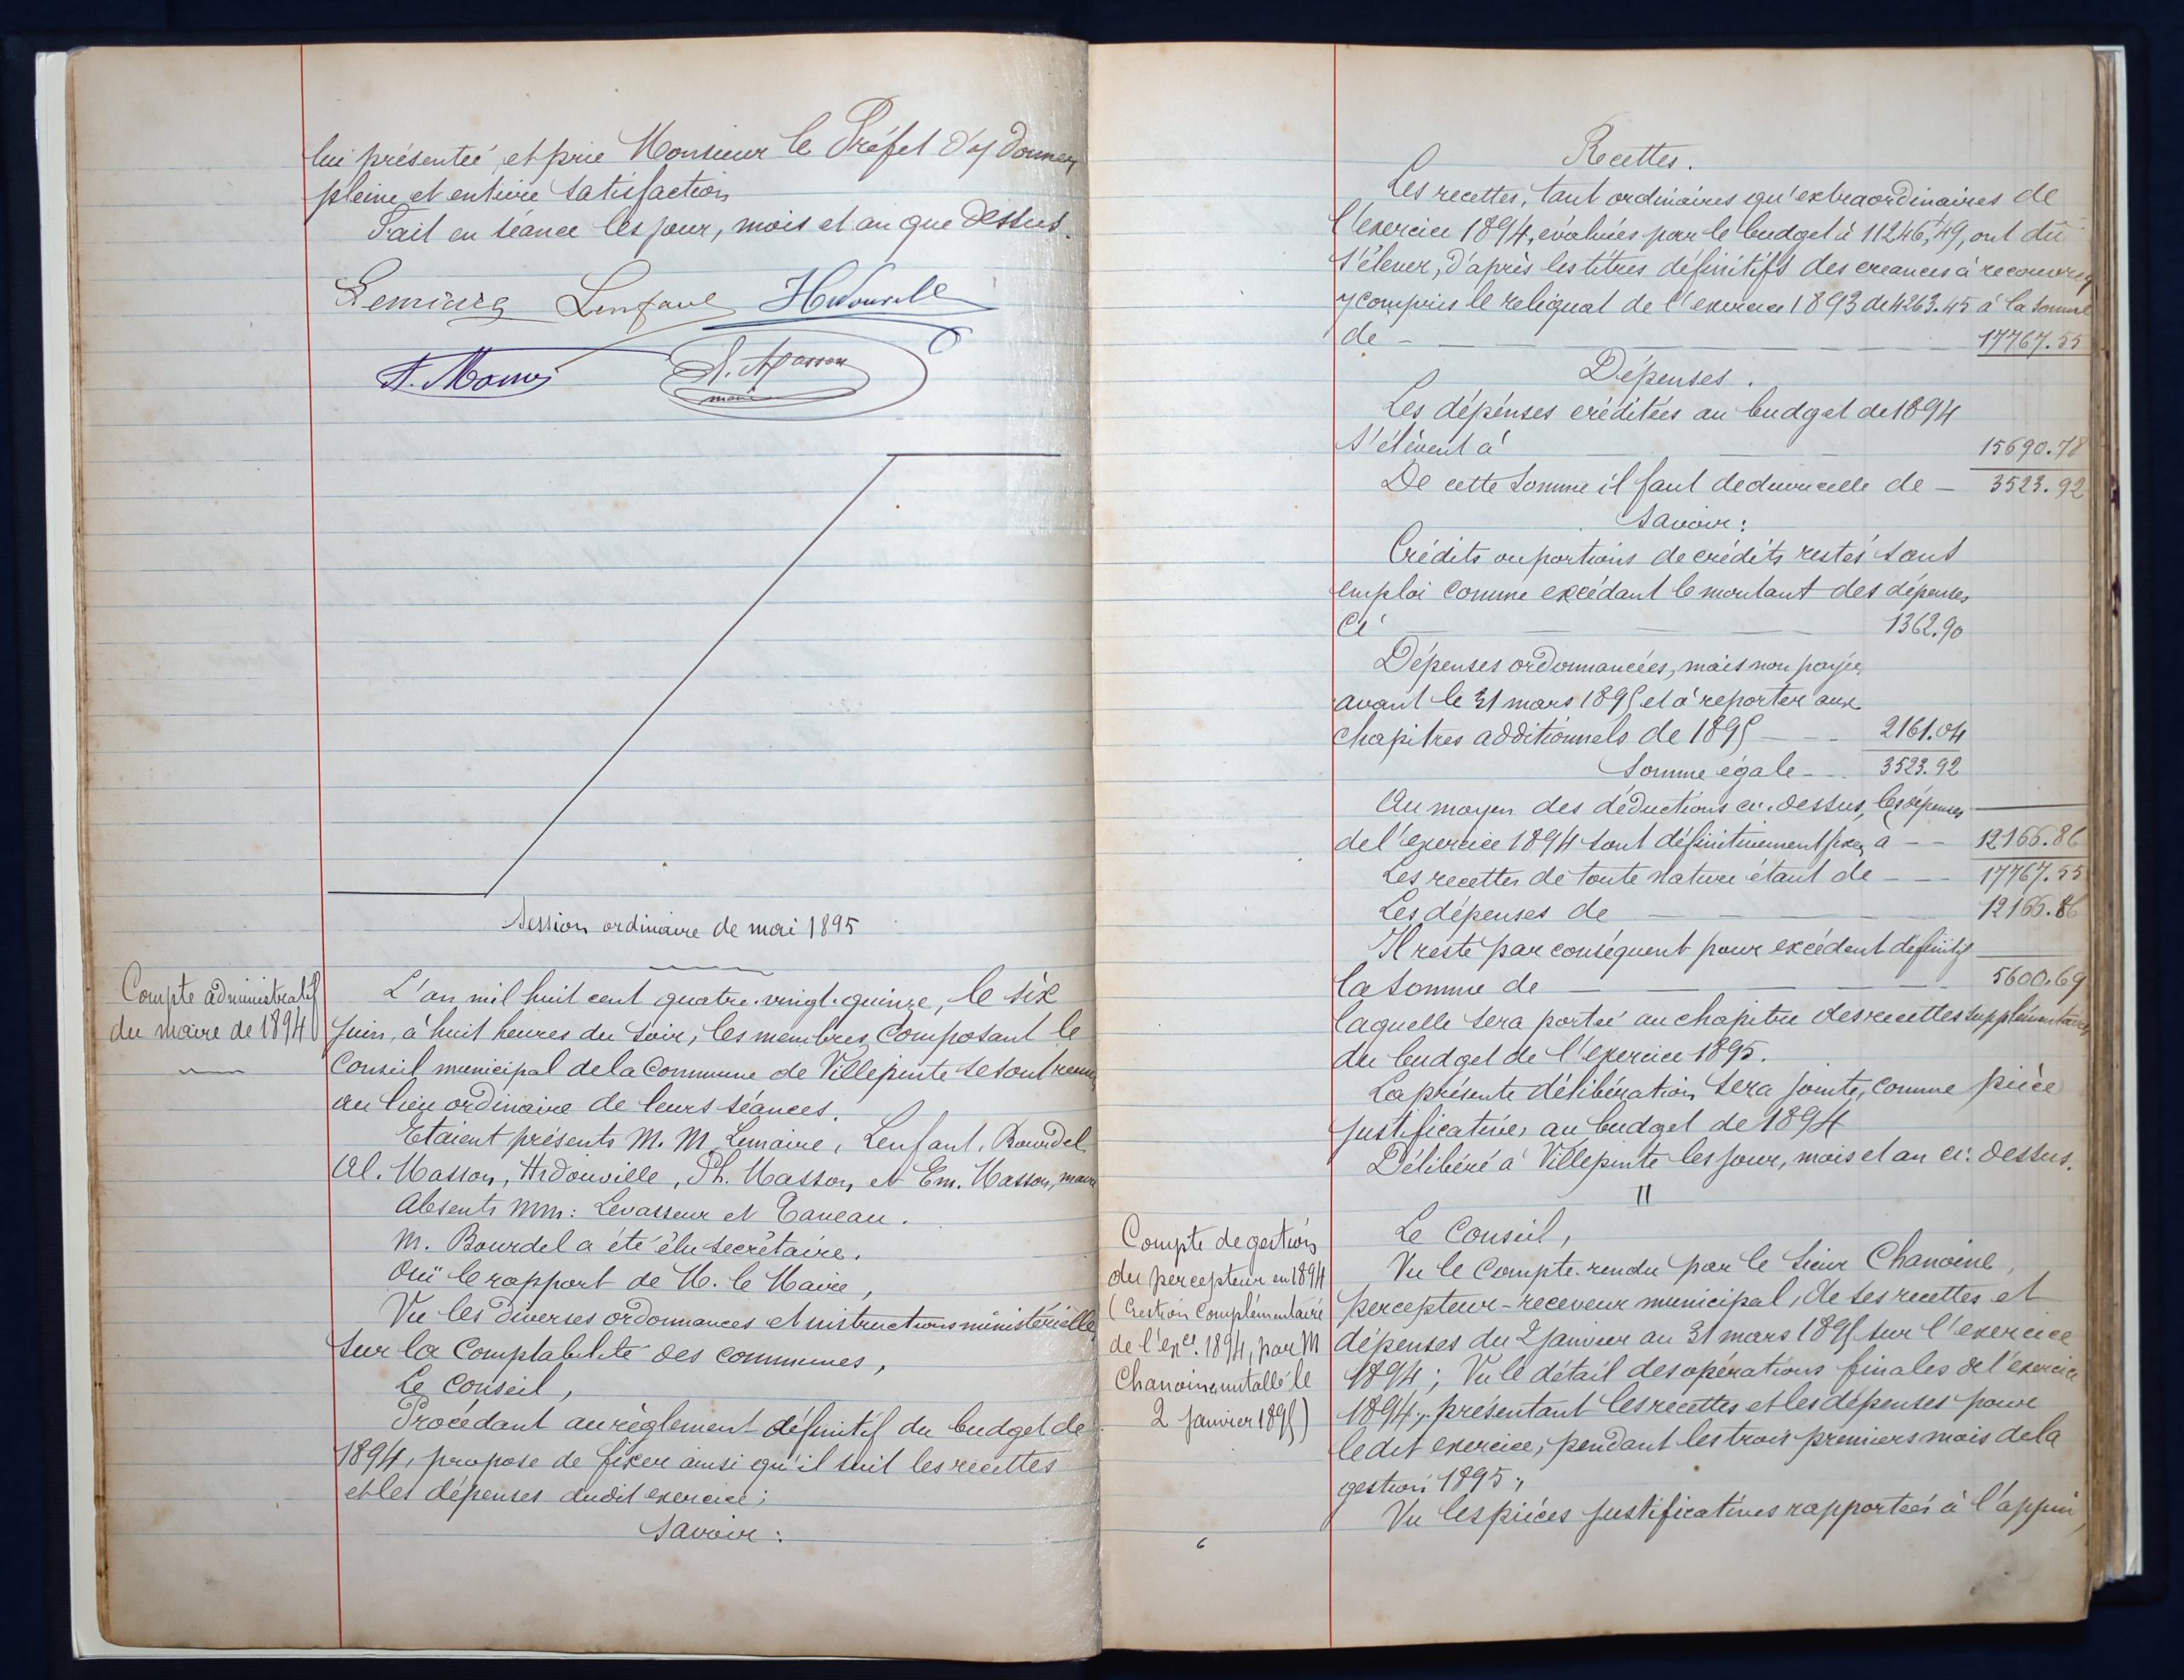 lui présentée, et prie Monsieur le Préfet d'y donner
pleine et entière satisfaction
Fait en séance les jour, mois et an que dessus.
Lemaire Lenfant Hidouville
A. Masson
maire
Session ordinaire de mai 1895
Compte administratif
du maire de 1894
L'an mil huit cent quatre-vingt-quinze, le six
juin, à huit heures du soir, les membres composant le
Conseil municipal de la Commune de Villepinte se sont réunis
au lieu ordinaire de leurs séances.
Etaient présents M. M. Lemaire, Lenfant, Bourdel
Al. Masson, Hidouville, Ph. Masson, et Em. Masson, maire
Absents Mm: Levasseur et Taveau.
M. Bourdel a été élu secrétaire.
Ouï le rapport de M. le Maire,
Vu les diverses ordonnances et instructions ministérielles
sur la Comptabilité des communes,
Le Conseil,
Procédant au règlement définitif du budget de
1894, propose de fixer ainsi qu'il suit les recettes
et les dépenses dudit exercice;
Savoir:
Recettes.
Les recettes, tant ordinaires qu'extraordinaires de
l'exercice 1894, évaluées par le budget à 11246,49, ont dû
s'élever, d'après les titres définitifs des créances à recouvrer
y compris le reliquat de l'exercice 1893 de 4263.45 à la somme
de - 17767.55
Dépenses.
Les dépenses créditées au budget de 1894
s'élèvent à 15690.78
De cette somme il faut déduire celle de - 3523.92
Savoir:
Crédits ou portions de crédits restés sans
emploi comme excédant le montant des dépenses
Ci 1362.90
Dépenses ordonnancées, mais non payées
avant le 31 mars 1895 et à reporter aux
chapitres additionnels de 1895 - 2161.04
Somme égale - 3523.92
Au moyen des déductions ci-dessus, les dépenses
de l'exercice 1894 sont définitivement fixées à - 12166.86
Les recettes de toute nature étant de - 17767.55
Les dépenses de - 12166.86
Il reste par conséquent pour excédent définitif
la somme de - 5600.69
laquelle sera portée au chapitre des recettes supplémentaires
du budget de l'exercice 1895.
La présente délibération sera jointe, comme pièce
justificative, au budget de 1894
Délibéré à Villepinte les jour, mois et an ci-dessus.
II
Compte de gestion
du percepteur en 1894
(Gestion Complémentaire
de l'exce. 1894, par M
Chanoine installé le
2 janvier 1895)
Le Conseil,
Vu le Compte-rendu par le Sieur Chanoine,
percepteur-receveur municipal, de ses recettes et
dépenses du 2 janvier au 31 mars 1895 sur l'exercice
1894; Vu le détail des opérations finales de l'exercice
1894, présentant les recettes et les dépenses pour
ledit exercice, pendant les trois premiers mois de la
gestion 1895;
Vu les pièces justificatives rapportées à l'appui,